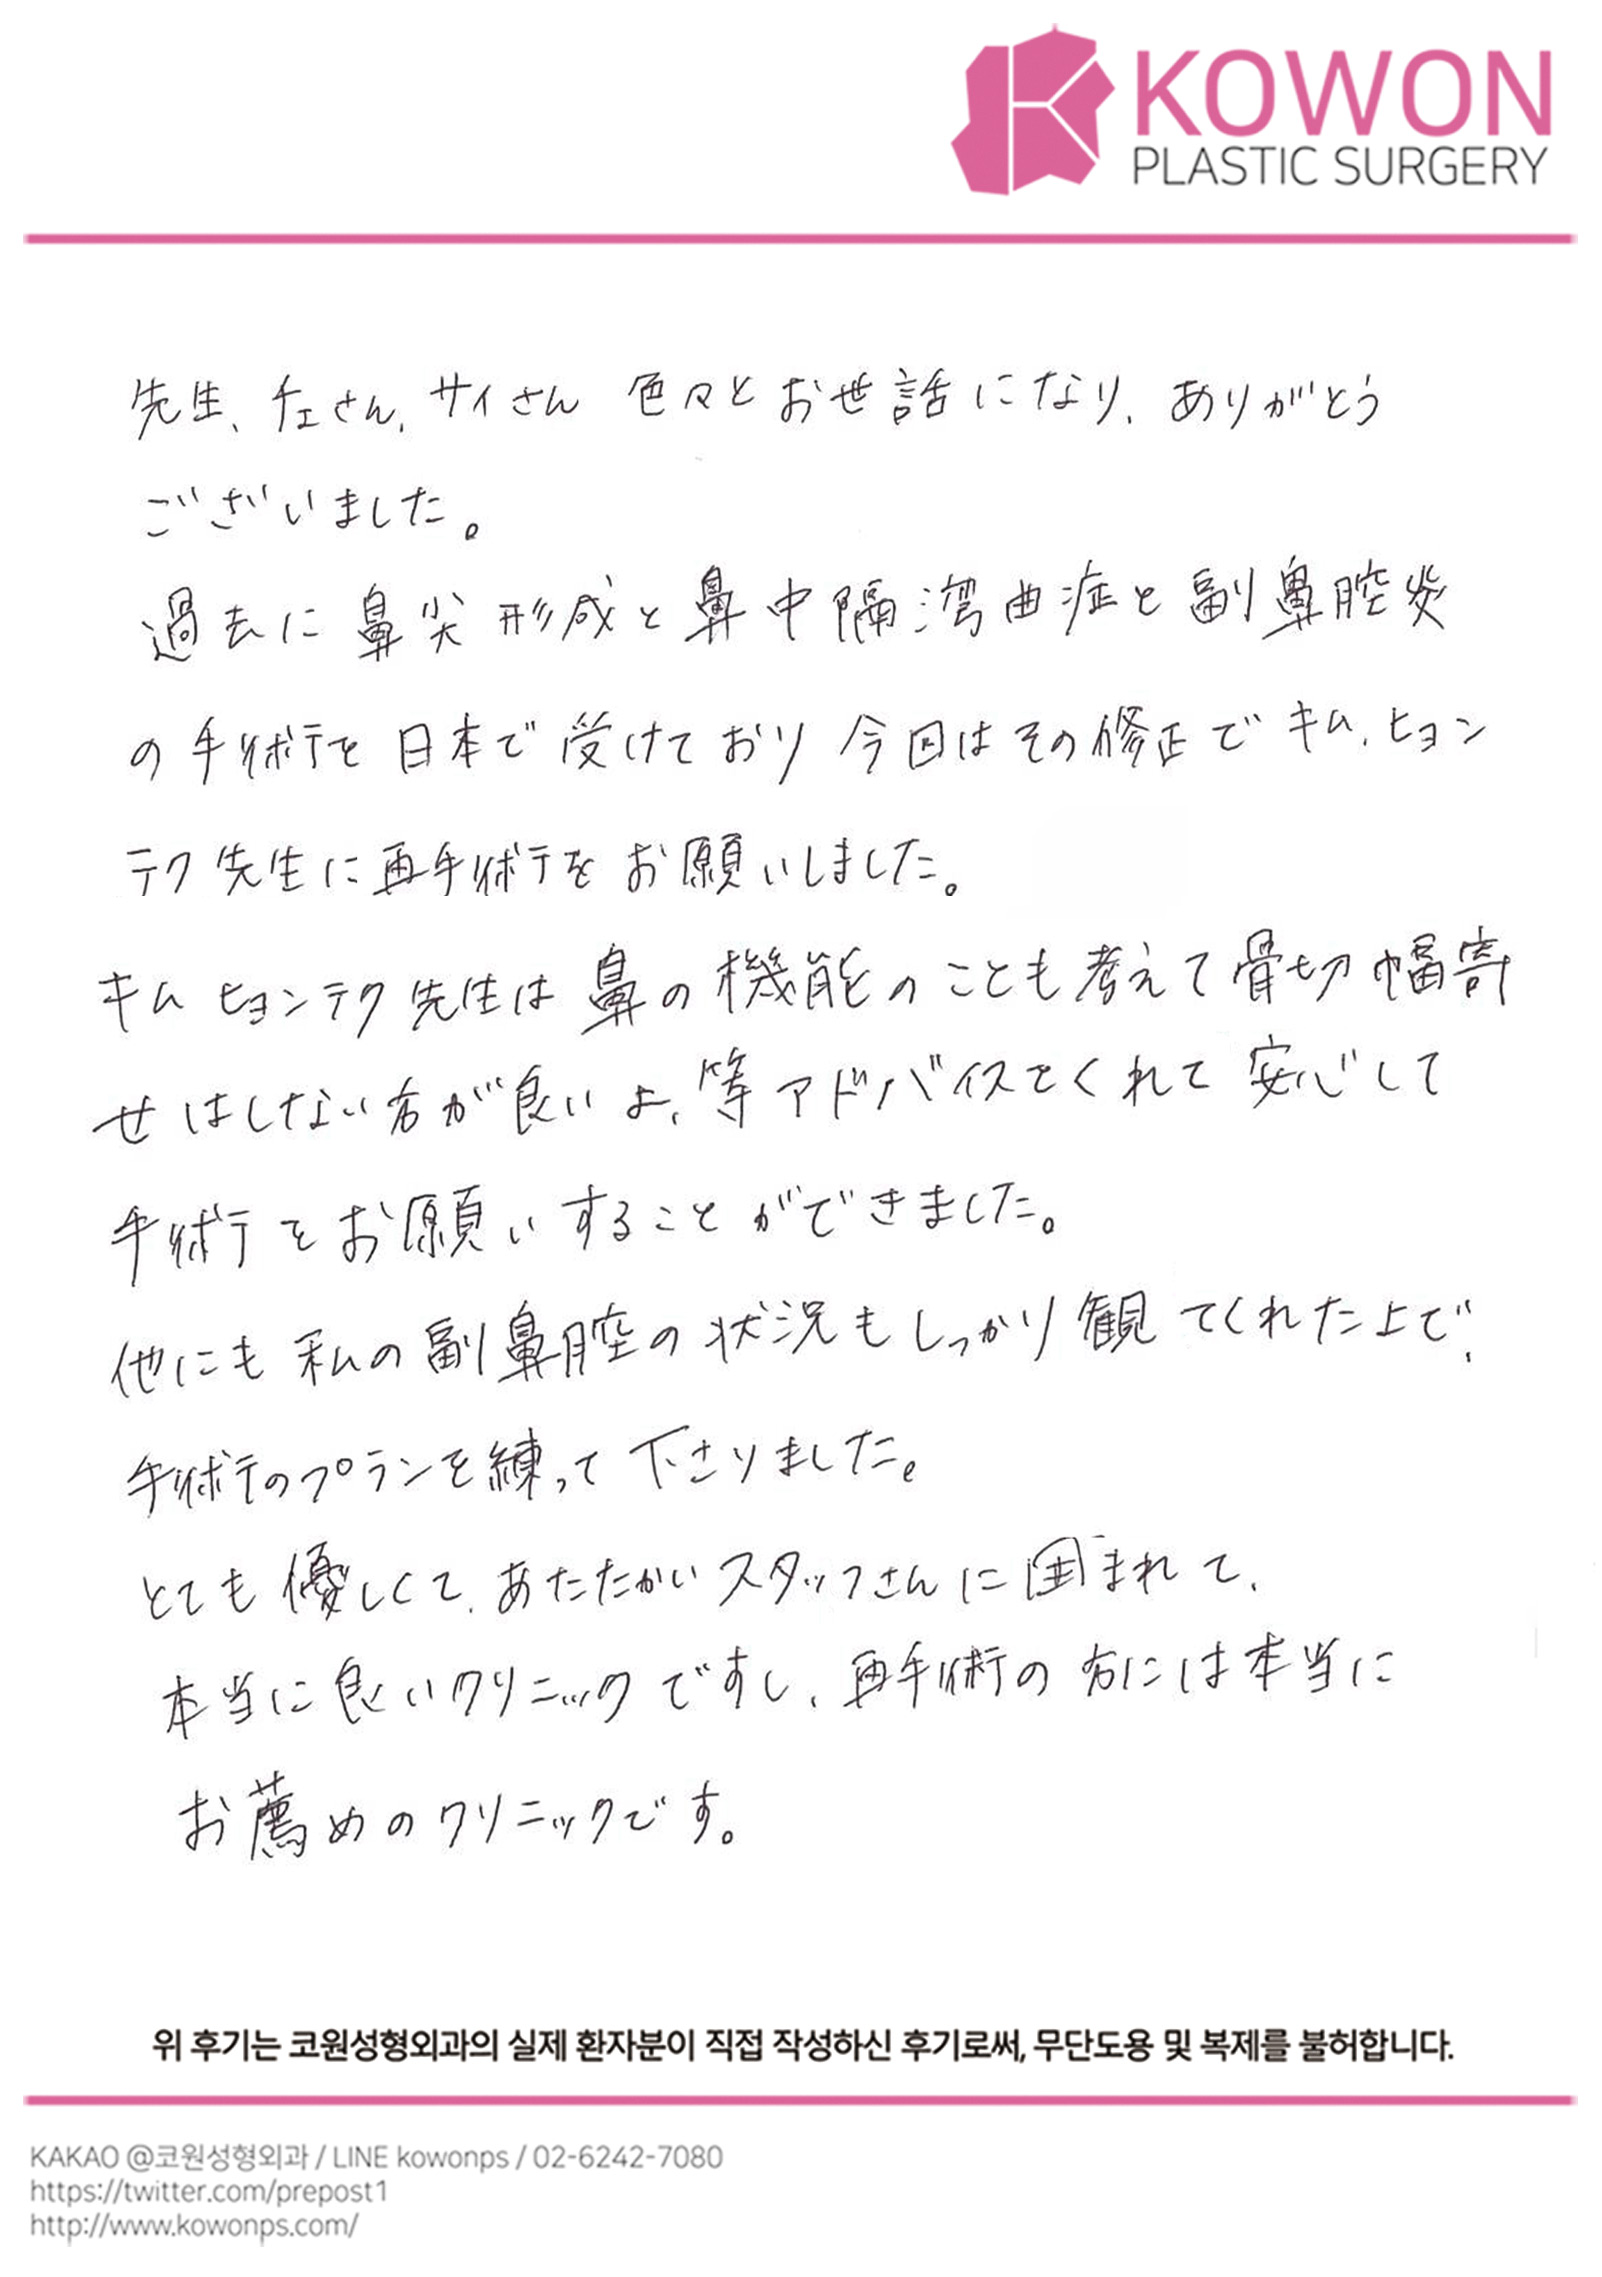 KOWON
PLASTIC SURGERY
先生、チェさん、サイさん 色々とお世話になり、ありがとう
ございました。
過去に鼻尖形成と鼻中隔湾曲症と副鼻腔炎
の手術を日本で受けており 今回はその修正でキム、ヒョン
テク先生に再手術をお願いしました。
キム ヒョンテク先生は鼻の機能のことも考えて骨切幅寄
せはしない方が良いよ、等アドバイスをくれて安心して
手術をお願いすることができました。
他にも私の副鼻腔の状況もしっかり観てくれた上で、
手術のプランを練って下さりました。
とても優しくて、あたたかいスタッフさんに囲まれて、
本当に良いクリニックですし、再手術の方には本当に
お薦めのクリニックです。
위 후기는 코원성형외과의 실제 환자분이 직접 작성하신 후기로써, 무단도용 및 복제를 불허합니다.
KAKAO @코원성형외과 / LINE kowonps / 02-6242-7080
https://twitter.com/prepost1
http://www.kowonps.com/